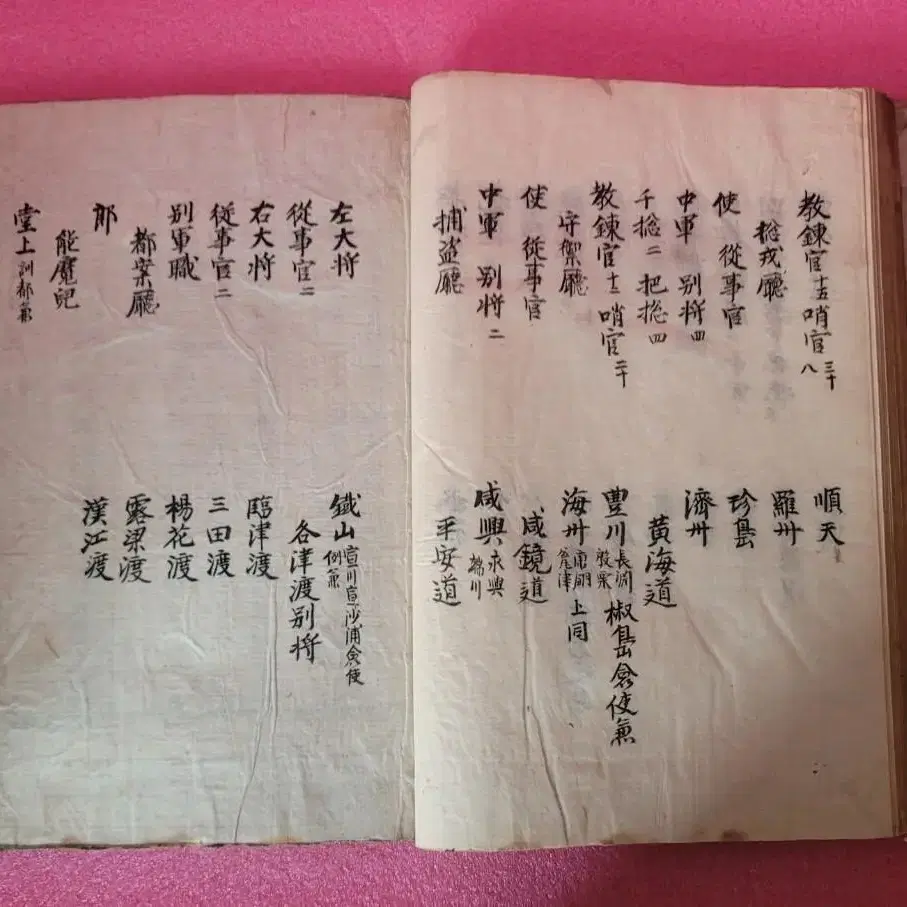 教鍊官十五哨官三十八
捴戎廳
使 從事官
中軍 別将四
千捴二 把捴四
教鍊官十二哨官二十
守禦廳
使 從事官
中軍 別将二
捕盗廳
順天
羅州
珍島
濟州
黃海道
豊川長淵殷栗椒島僉使兼
海州康翎瓮津上同
咸鏡道
咸興永興
平安道
左大将
從事官二
右大将
從事官二
別軍職
都案廳
郎
能麽兒
堂上訓都兼
鐵山宣川宣沙浦僉使例兼
各津渡別将
臨津渡
三田渡
楊花渡
露梁渡
漢江渡